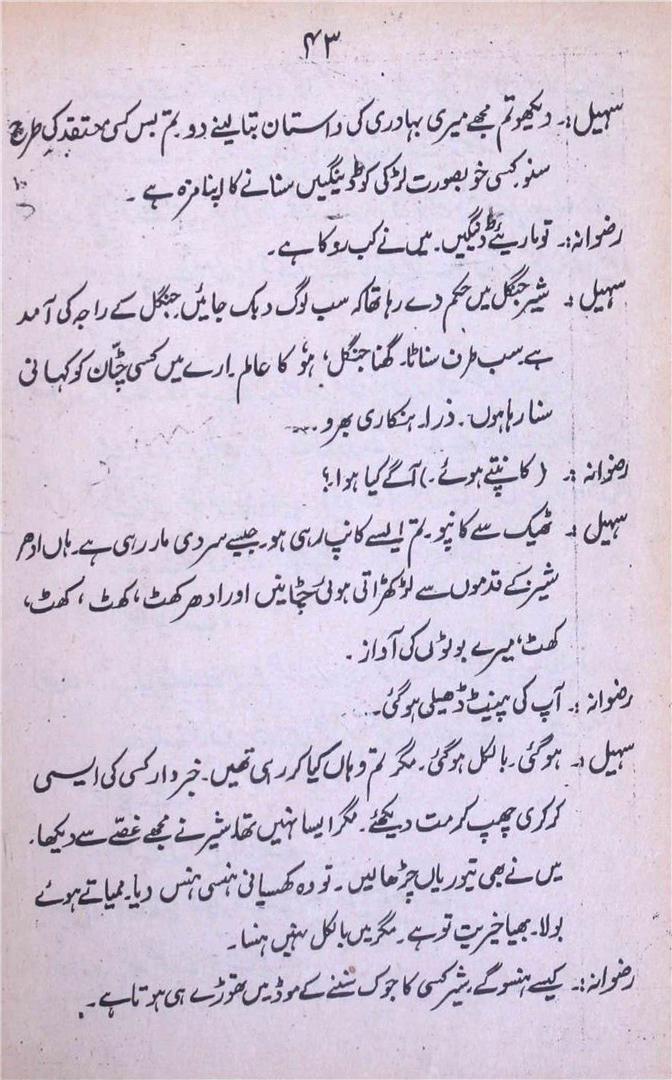 ۴۳
سہیل :۔ دیکھو تم مجھے میری بہادری کی داستان بتا لینے دو۔ تم بس کسی معتقد کی طرح
سنو۔ کسی خوبصورت لڑکی کو ڈینگیں سنانے کا اپنا مزہ ہے ۔
رضوانہ :۔ تو ماریئے ڈینگیں۔ میں نے کب روکا ہے ۔
سہیل :۔ شیر جنگل میں حکم دے رہا تھا کہ سب لوگ دبک جائیں۔ جنگل کے راجہ کی آمد
ہے۔ سب طرف سناٹا۔ گھنا جنگل، ہُو کا عالم۔ ارے میں کسی چٹّان کو کہانی
سنا رہا ہوں۔ ذرا ہنکاری بھرو ۔۔۔
رضوانہ :۔ (کانپتے ہوئے۔) آگے کیا ہوا ۔؟
سہیل :۔ ٹھیک سے کانپو۔ تم ایسے کانپ رہی ہو۔ جیسے سردی مار رہی ہے۔ ہاں ادھر
شیر کے قدموں سے لڑکھڑاتی ہوئی چٹانیں اور ادھر کھٹ، کھٹ ، کھٹ،
کھٹ، میرے بوٹوں کی آواز ۔
رضوانہ :۔ آپ کی پینٹ ڈھیلی ہو گئی۔
سہیل :۔ ہو گئی۔ بالکل ہو گئی۔ مگر تم وہاں کیا کر رہی تھیں۔ خبردار کسی کی ایسی
کرکری چھپ کر مت دیکھئے۔ مگر ایسا نہیں تھا۔ شیر نے مجھے غصّے سے دیکھا۔
میں نے بھی تیوریاں چڑھا لیں ۔ تو وہ کھسیانی ہنسی ہنس دیا۔ ممیاتے ہوئے
بولا۔ بھیا خیریت تو ہے۔ مگر میں بالکل نہیں ہنسا ۔
رضوانہ :۔ کیسے ہنسو گے۔ شیر کسی کا جوک سننے کے موڈ میں تھوڑے ہی ہوتا ہے ۔